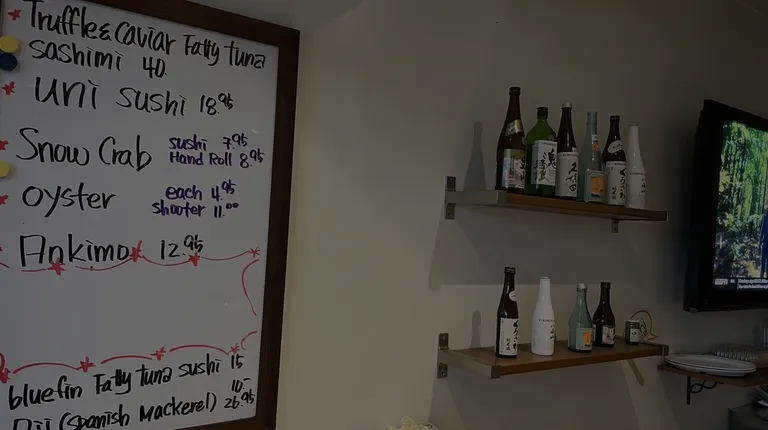 Truffle & caviar Fatty tuna
sashimi 40.
uni sushi 18.95
Snow Crab sushi 7.95
Hand Roll 8.95
oyster each 4.95
shooter 11.00
Ankimo 12.95
bluefin Fatty tuna sushi 15
10.-
(Spanish Mackerel) 26.95
久保田